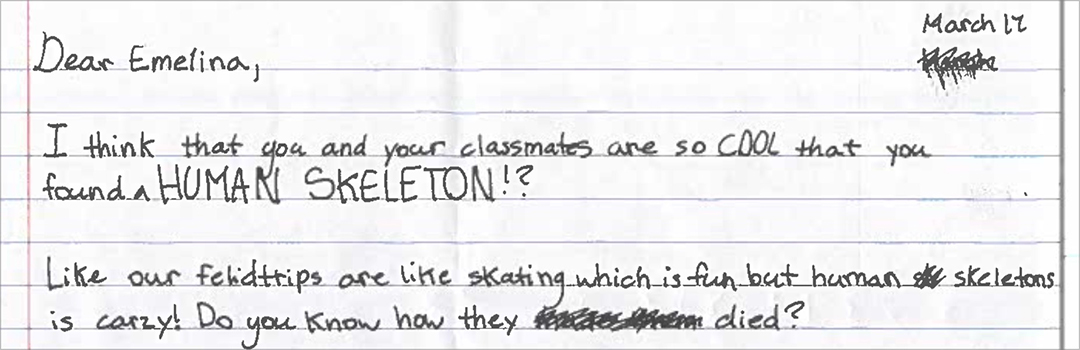 March 17
Dear Emelina,
I think that you and your classmates are so COOL that you
found a HUMAN SKELETON!?
Like our felidtrips are like skating which is fun but human skeletons
is carzy! Do you know how they died?